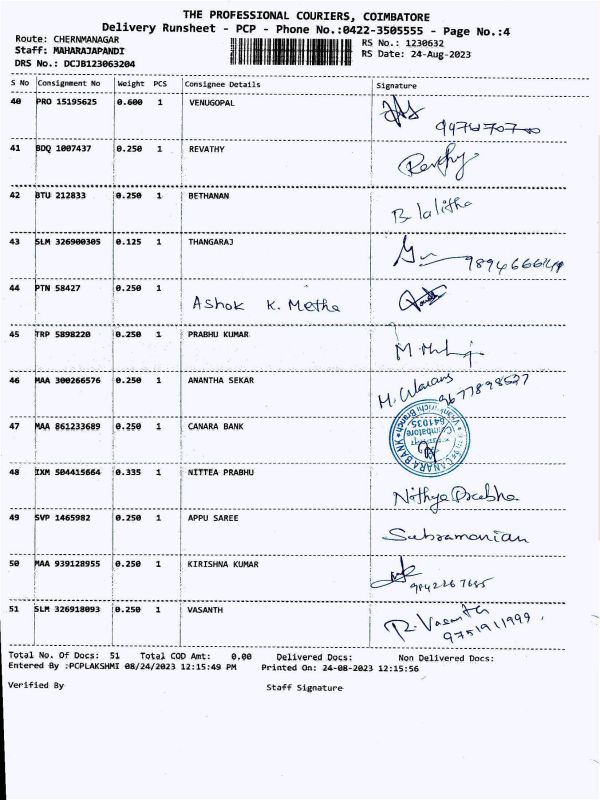 THE PROFESSIONAL COURIERS, COIMBATORE
Delivery Runsheet - PCP - Phone No.:0422-3505555 - Page No.:4
Route: CHERNMANAGAR
RS No.: 1230632
Staff: MAHARAJAPANDI
RS Date: 24-Aug-2023
DRS No.: DCJB123063204
S No Consignment No Weight PCS Consignee Details Signature
40 PRO 15195625 0.600 1 VENUGOPAL
41 BDQ 1007437 0.250 1 REVATHY Revathy
42 BTU 212833 0.250 1 BETHANAN B. lalitha
43 SLM 326900305 0.125 1 THANGARAJ
44 PTN 58427 0.250 1 Ashok K. Metha
45 TRP 5898220 0.250 1 PRABHU KUMAR
46 MAA 300266576 0.250 1 ANANTHA SEKAR 9677898527
47 MAA 861233689 0.250 1 CANARA BANK CANARA BANK Coimbatore 641035
48 IXM 504415664 0.335 1 NITTEA PRABHU Nithya Prabha
49 SVP 1465982 0.250 1 APPU SAREE Subramanian
50 MAA 939128955 0.250 1 KIRISHNA KUMAR
51 SLM 326918093 0.250 1 VASANTH R. Vasanth
9751911999
Total No. Of Docs: 51 Total COD Amt: 0.00 Delivered Docs: Non Delivered Docs:
Entered By :PCPLAKSHMI 08/24/2023 12:15:49 PM Printed On: 24-08-2023 12:15:56
Verified By Staff Signature